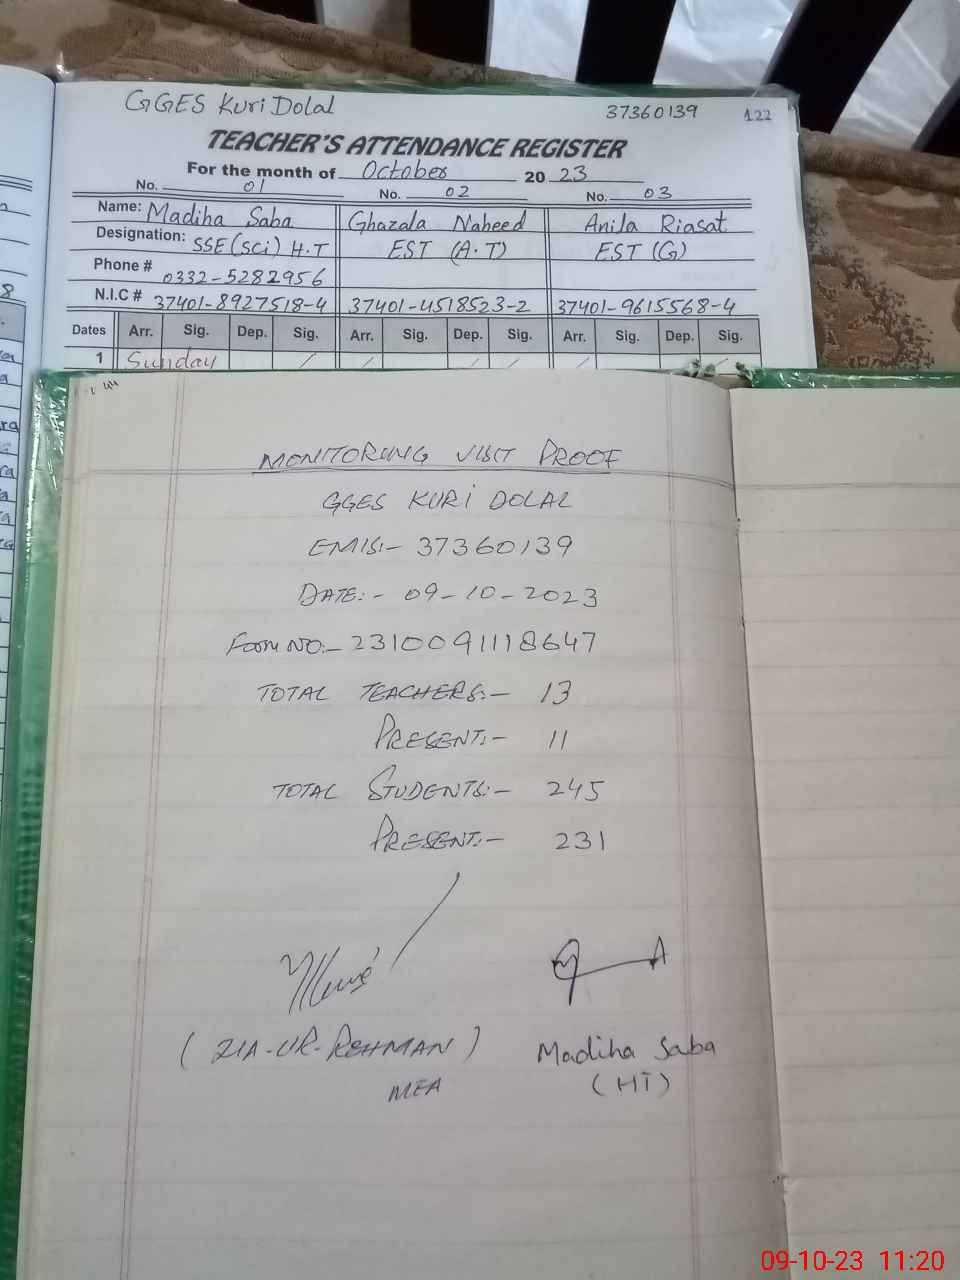 GGES Kuri Dolal 37360139 122
TEACHER'S ATTENDANCE REGISTER
For the month of October 2023
No. 01 No. 02 No. 03
Name: Madiha Saba Ghazala Naheed Anila Riasat
Designation: SSE (Sci) H.T EST (A.T) EST (G)
Phone # 0332-5282956
N.I.C # 37401-8927518-4 37401-4518523-2 37401-9615568-4
Dates Arr. Sig. Dep. Sig. Arr. Sig. Dep. Sig. Arr. Sig. Dep. Sig.
1 Sunday
MONITORING VISIT PROOF
GGES KURI DOLAL
EMIS:- 37360139
DATE:- 09-10-2023
Form NO:- 2310091118647
TOTAL TEACHERS:- 13
PRESENT:- 11
TOTAL STUDENTS:- 245
PRESENT:- 231
(ZIA-UR-REHMAN) Madiha Saba
MEA (HT)
09-10-23 11:20